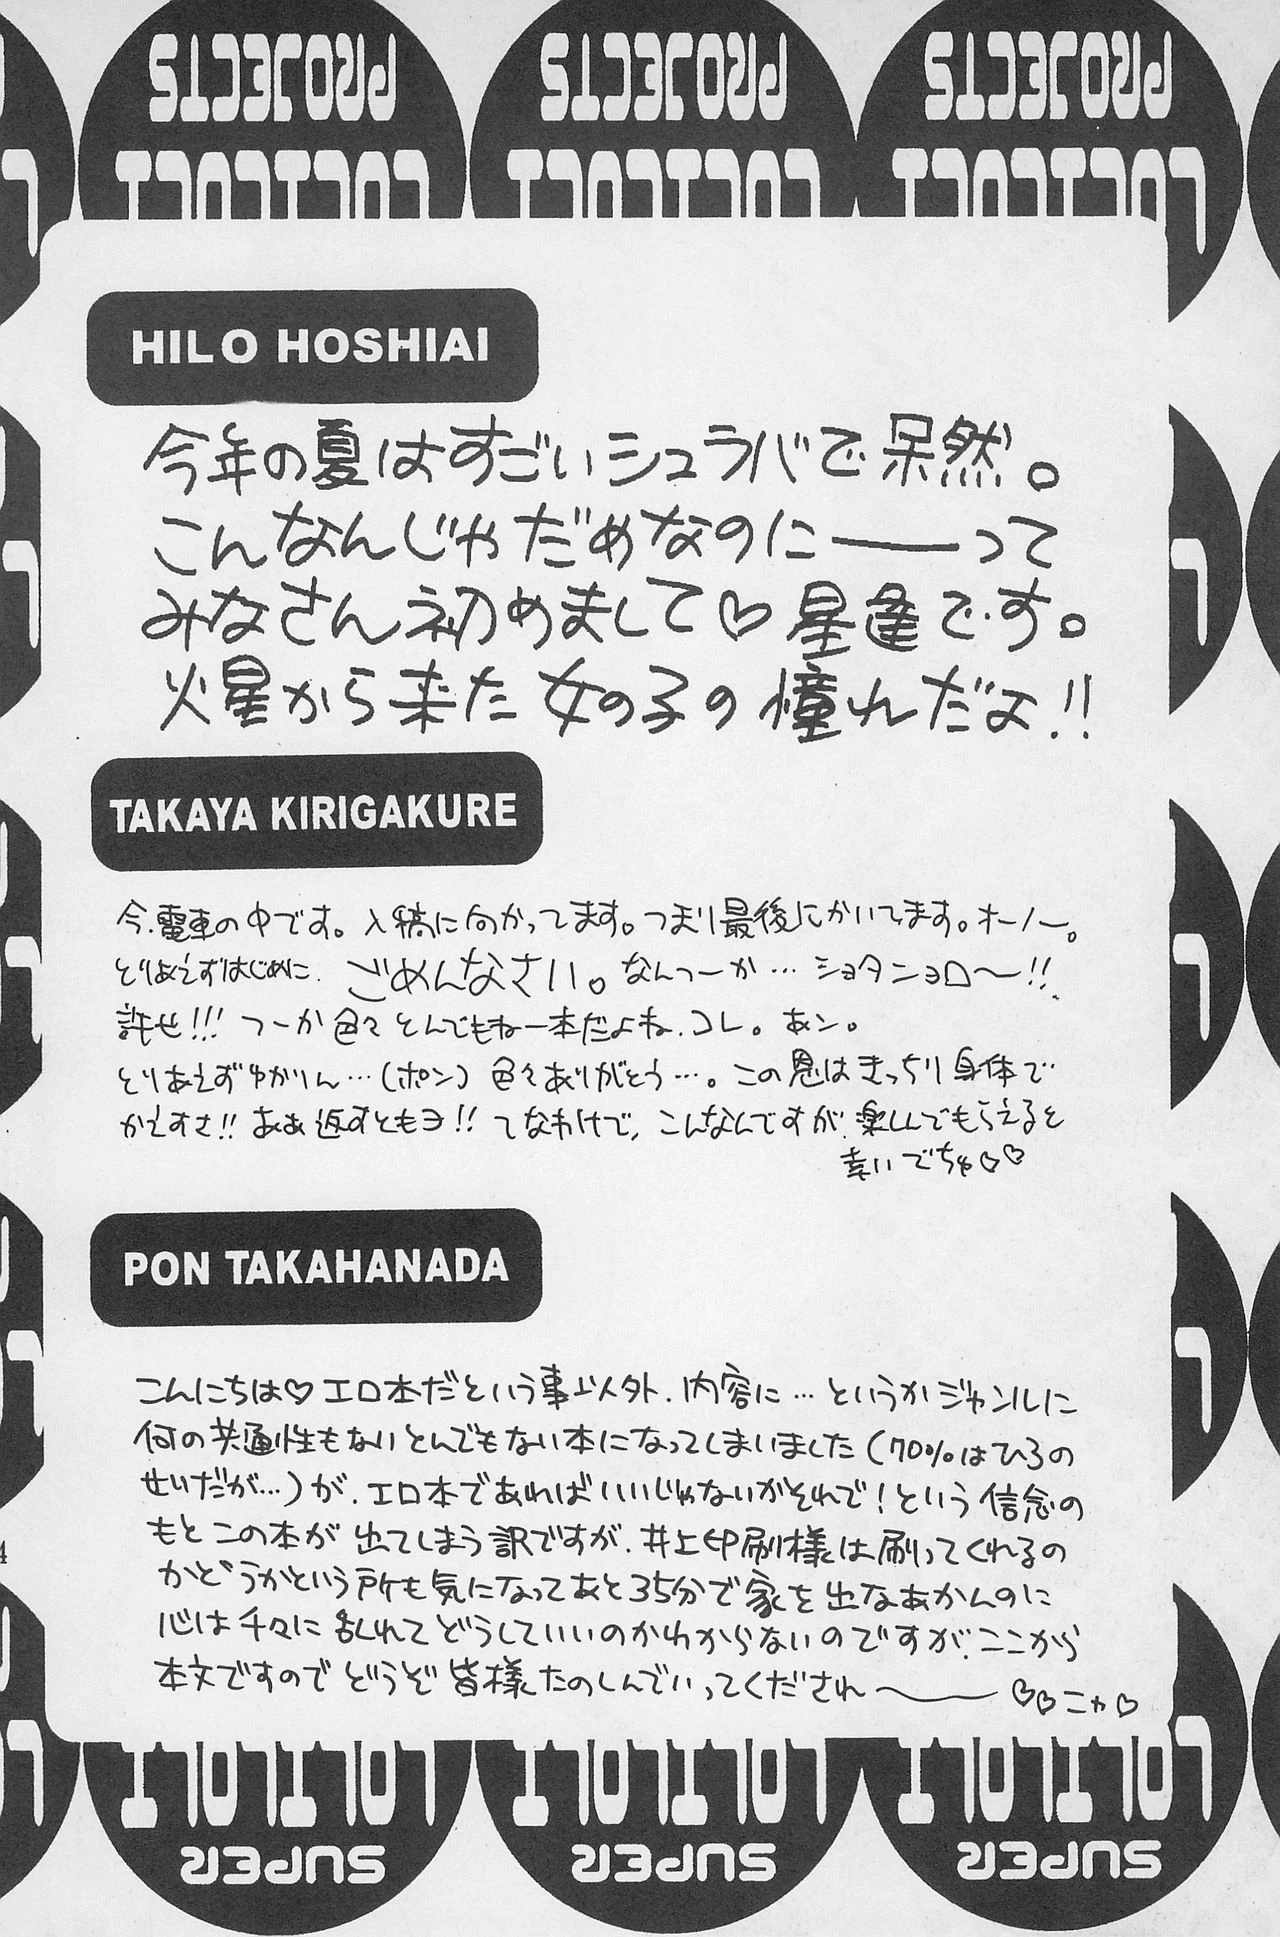 PROJECTS PROJECTS PROJECTS
LOLILOLI LOLILOLI LOLILOLI
HILO HOSHIAI
今年の夏はすごいシュラバで呆然。
こんなんじゃだめなのに――って
みなさん初めまして♡星逢です。
火星から来た女の子の憧れだよ!!
TAKAYA KIRIGAKURE
今、電車の中です。入稿に向かってます。つまり最後にかいてます。オーノー。
とりあえずはじめに、ごめんなさい。なんつーか…ショタンョロ〜!!
許せ!!!つーか色々とんでもねー本だよね、コレ。あン。
とりあえずゆかりん…(ポン)色々ありがとう…。この恩はきっちり身体で
かえすさ!!ああ返すともヨ!!てなわけで、こんなんですが、楽しんでもらえると
幸いでちゅ♡♡
PON TAKAHANADA
こんにちは♡エロ本だという事以外、内容に…というかジャンルに
何の共通性もないとんでもない本になってしまいました(70%はひろの
せいだが…)が、エロ本であればいいじゃないかそれで!という信念の
もとこの本が出てしまう訳ですが、井上印刷様は刷ってくれるの
かどうかという所も気になってあと35分で家を出なあかんのに
心は千々に乱れてどうしていいのかわからないのですが、ここから
本文ですのでどうぞ皆様たのしんでいってくだされ〜♡♡ニャ♡
4
LOLILOLI LOLILOLI LOLILOLI
SUPER SUPER SUPER